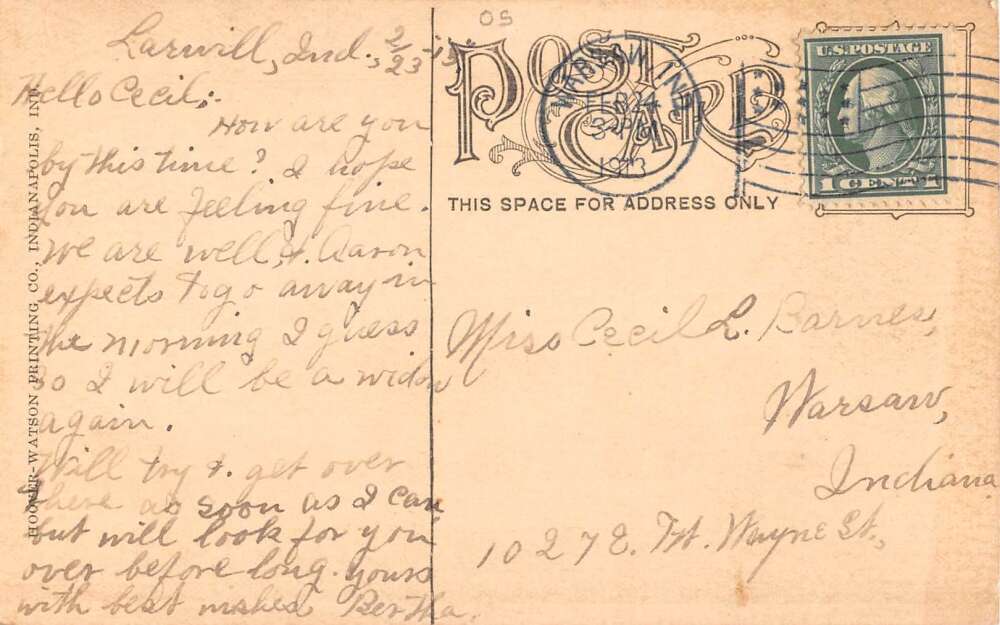 OS
Larwill, Ind., 2/23-13
Hello Cecil;-
How are you
by this time? I hope
you are feeling fine.
We are well, &. Aaron
expects to go away in
the morning I guess
so I will be a widow
again.
Will try &. get over
there as soon as I can
but will look for you
over before long. Yours
with best wishes Bertha.
HOOVER-WATSON PRINTING CO., INDIANAPOLIS, IND.
POST CARD
WARSAW, IND.
FEB 24
1913
U.S. POSTAGE
1 CENT 1
THIS SPACE FOR ADDRESS ONLY
Miss Cecil L. Barnes,
Warsaw,
Indiana
1027 E. Ft. Wayne St.,